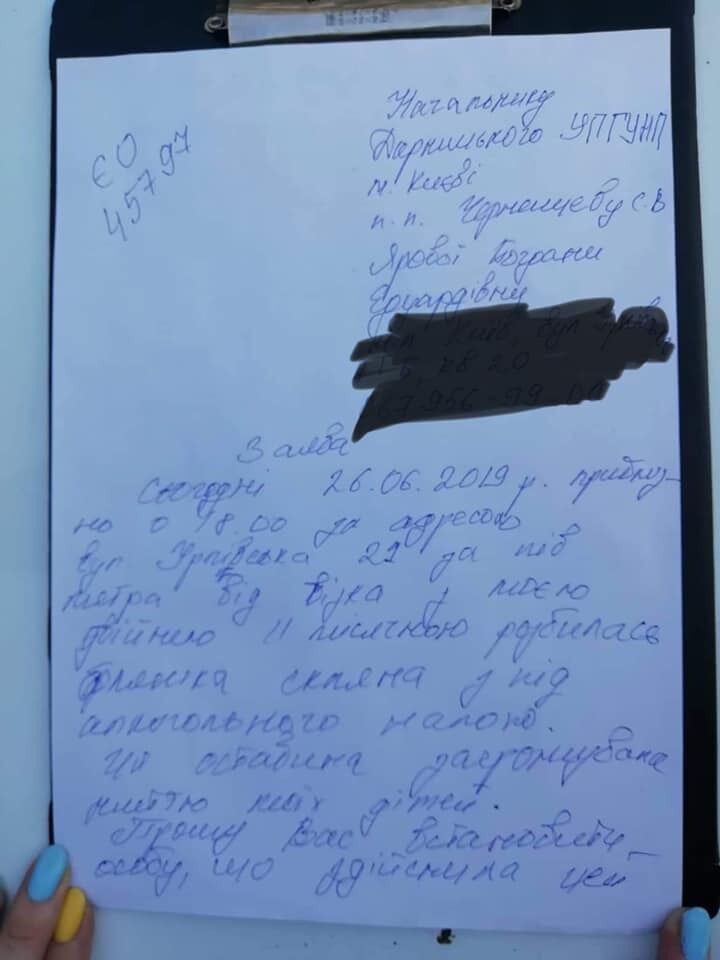 ЄО
45797
Начальнику
Дарницького УПГУНП
м. Києві
п. п.
Ярової Богдани
Едуардівни
Заява
Сьогодні 26.06.2019 р. приблиз-
но о 18.00 за адресою
вул. Урлівська за пів
метра від візка з моєю
двійнею 11 місячною розбилась
пляшка скляна з під
алкогольного напою.
Ця загрожувала
життю моїх дітей.
Прошу Вас встановити
особу, що здійснила цей